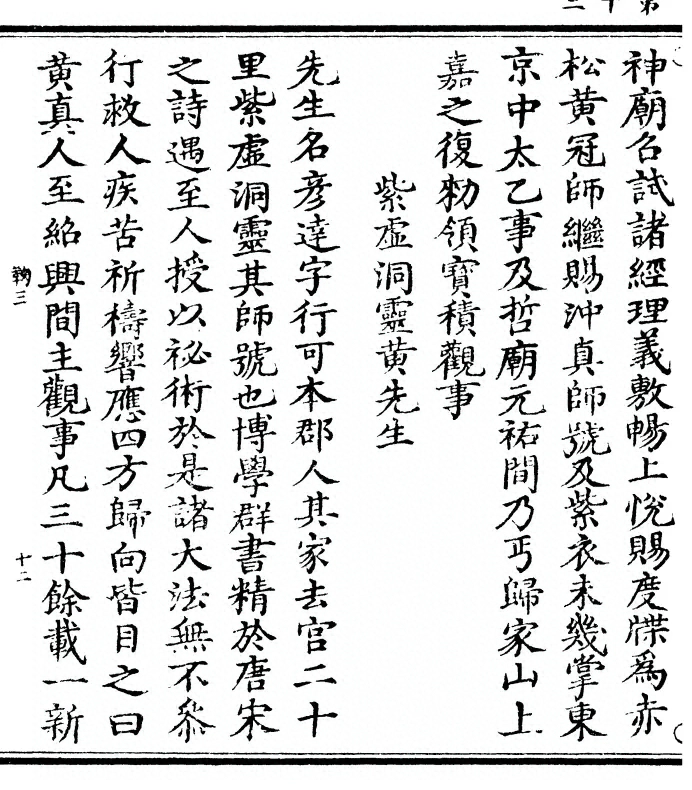 神廟召試諸經理義敷暢上悅賜度牒爲赤
松黄冠師繼賜沖真師號及紫衣未幾掌東
京中太乙事及哲廟元祐間乃丐歸家山上
嘉之復勑領寳積觀事
紫虛洞靈黄先生
先生名彦達字行可本郡人其家去宫二十
里紫虛洞靈其師號也博學群書精於唐宋
之詩遇至人授以祕術於是諸大法無不叅
行救人疾苦祈禱響應四方歸向皆目之曰
黄真人至紹興間主觀事凡三十餘載一新
鞠三
十二